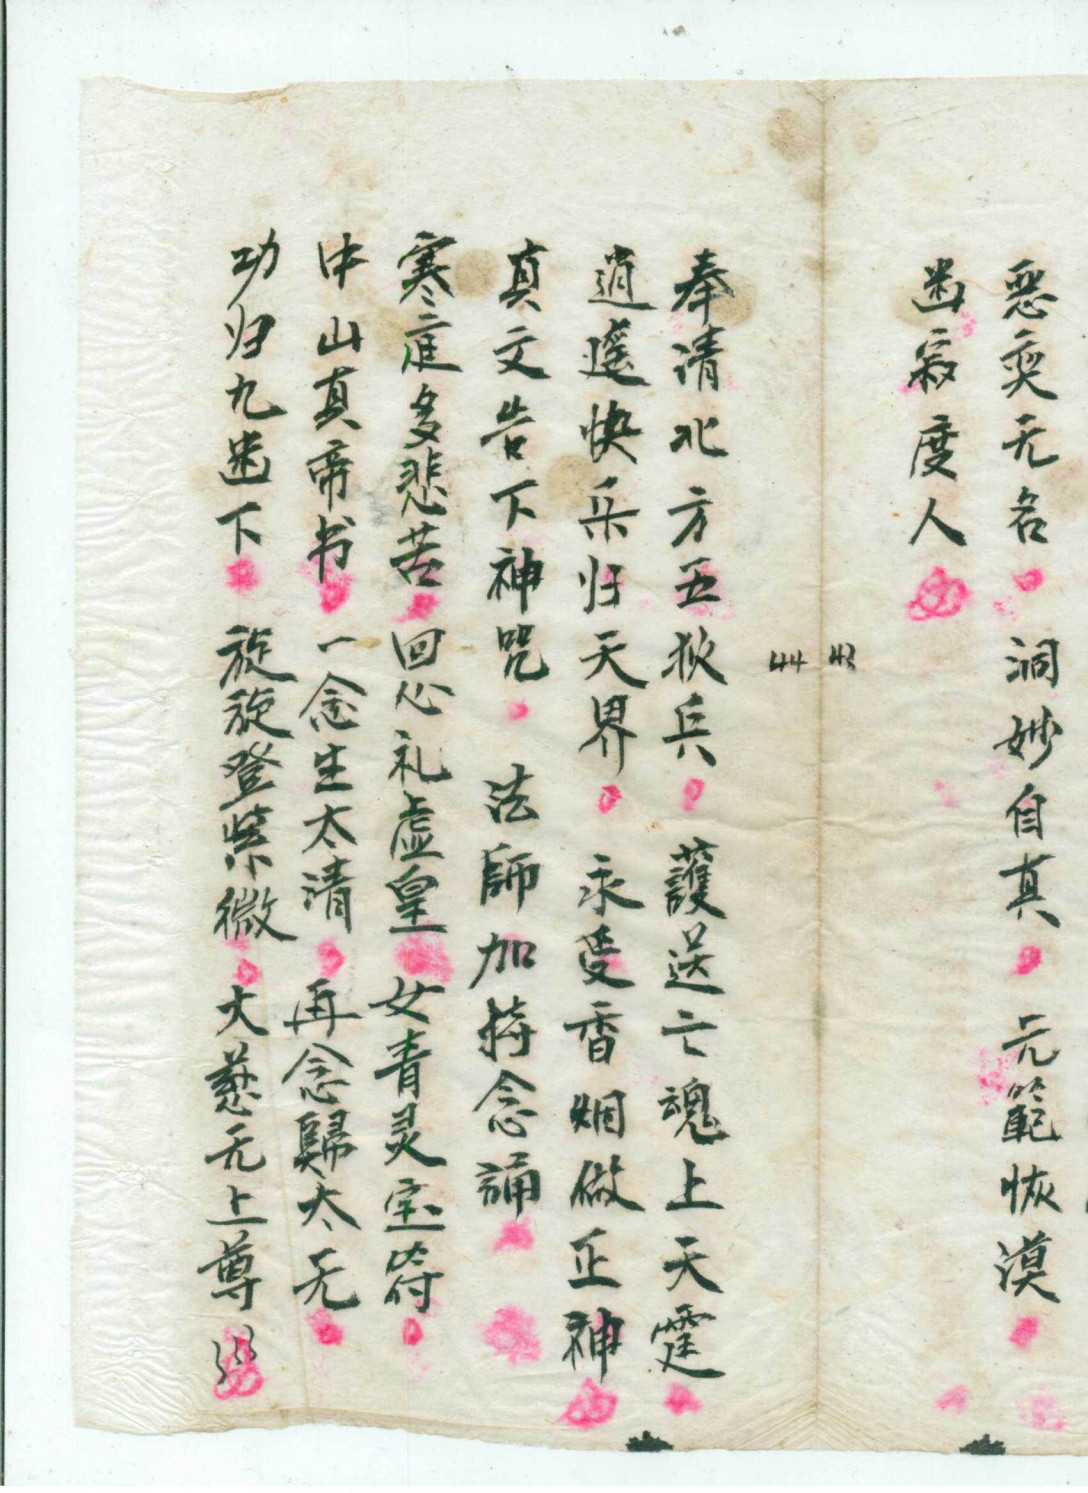 恶奕无名 洞妙自真 元範恢漠
幽寂度人
43
44
奉请北方五狄兵 護送亡魂上天霆
逍遥快乐归天界 永受香烟做正神
真文告下神咒 法師加持念誦
寒庭多悲苦 回心礼虚皇 女青灵宝符
中山真帝书 一念生太清 再念歸太无
功归九幽下 旋旋登紫微 大慈无上尊